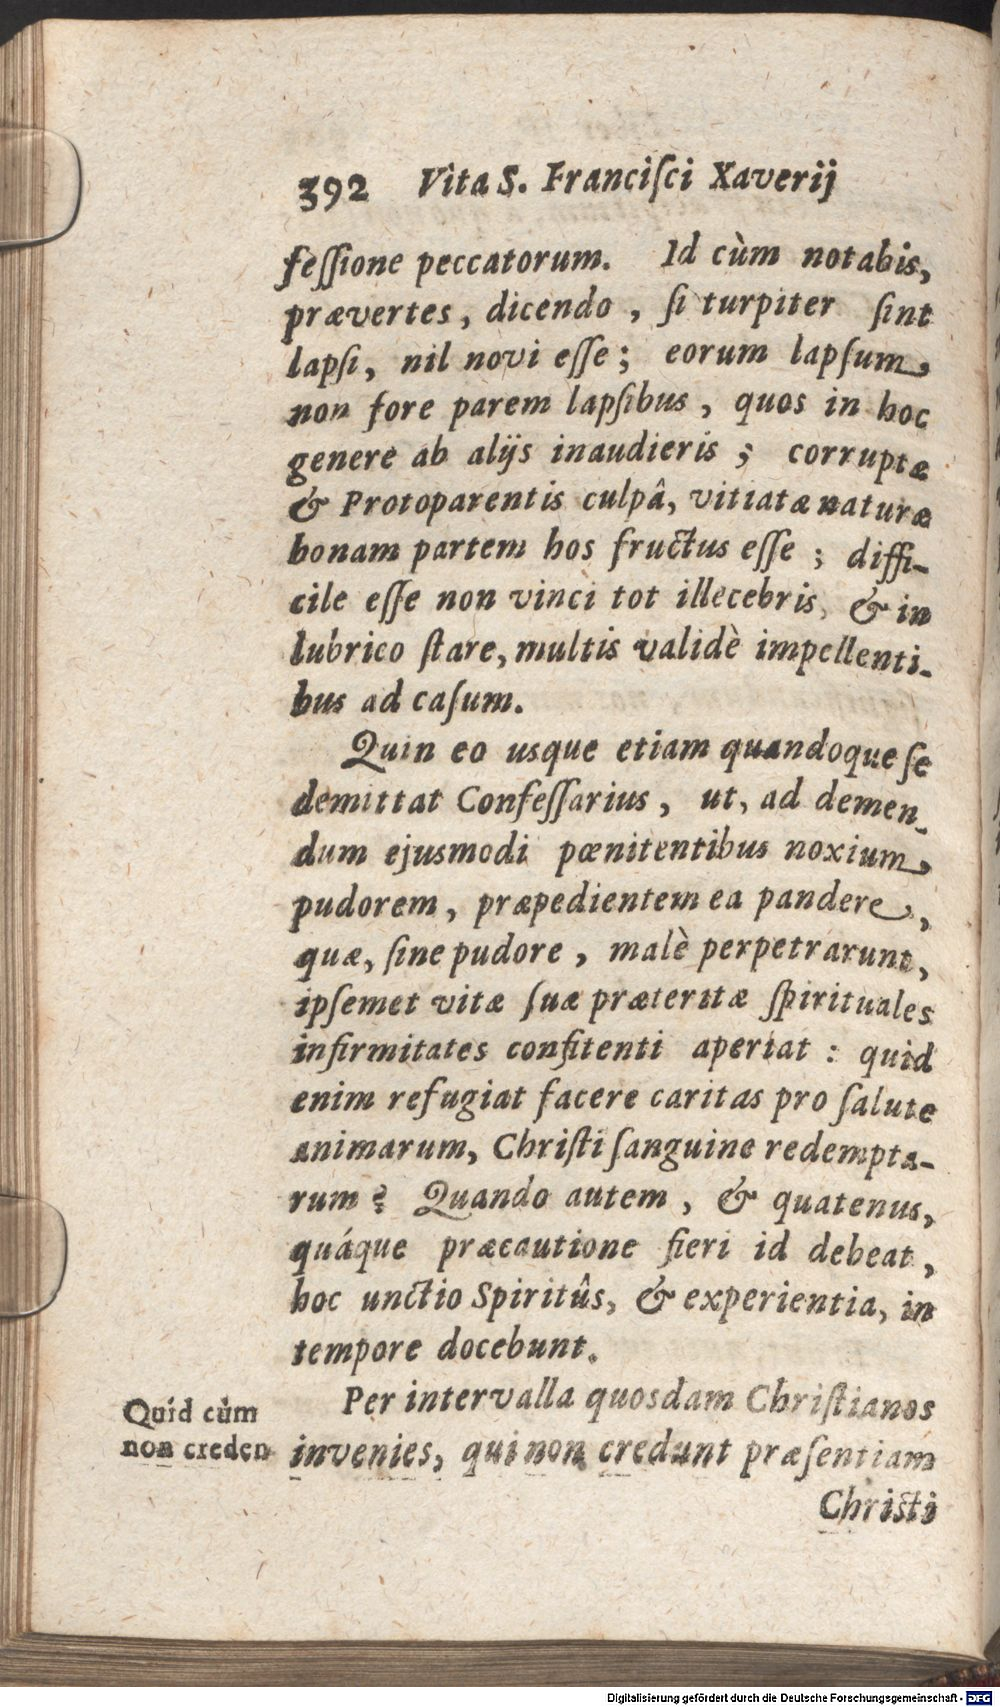 392 Vita S. Franciſci Xaverij
feſſione peccatorum. Id cùm notabis,
prævertes, dicendo, ſi turpiter ſint
lapſi, nil novi eſſe; eorum lapſum,
non fore parem lapſibus, quos in hoc
genere ab alijs inaudieris; corruptæ
& Protoparentis culpâ, vitiatæ naturæ
bonam partem hos fructus eſſe; diffi-
cile eſſe non vinci tot illecebris, & in
lubrico ſtare, multis validè impellenti-
bus ad caſum.
Quin eo usque etiam quandoque ſe
demittat Confeſſarius, ut, ad demen-
dum ejusmodi pœnitentibus noxium,
pudorem, præpedientem ea pandere,
quæ, ſine pudore, malè perpetrarunt,
ipſemet vitæ ſuæ præteritæ ſpirituales
infirmitates confitenti aperiat: quid
enim refugiat facere caritas pro ſalute
animarum, Chriſti ſanguine redempta-
rum? Quando autem, & quatenus,
quáque præcautione fieri id debeat,
hoc unctio Spiritûs, & experientia, in
tempore docebunt.
Per intervalla quosdam Chriſtianos
invenies, qui non credunt præſentiam
Quid cùm
non creden
Chriſti
Digitalisierung gefördert durch die Deutsche Forschungsgemeinschaft - DFG